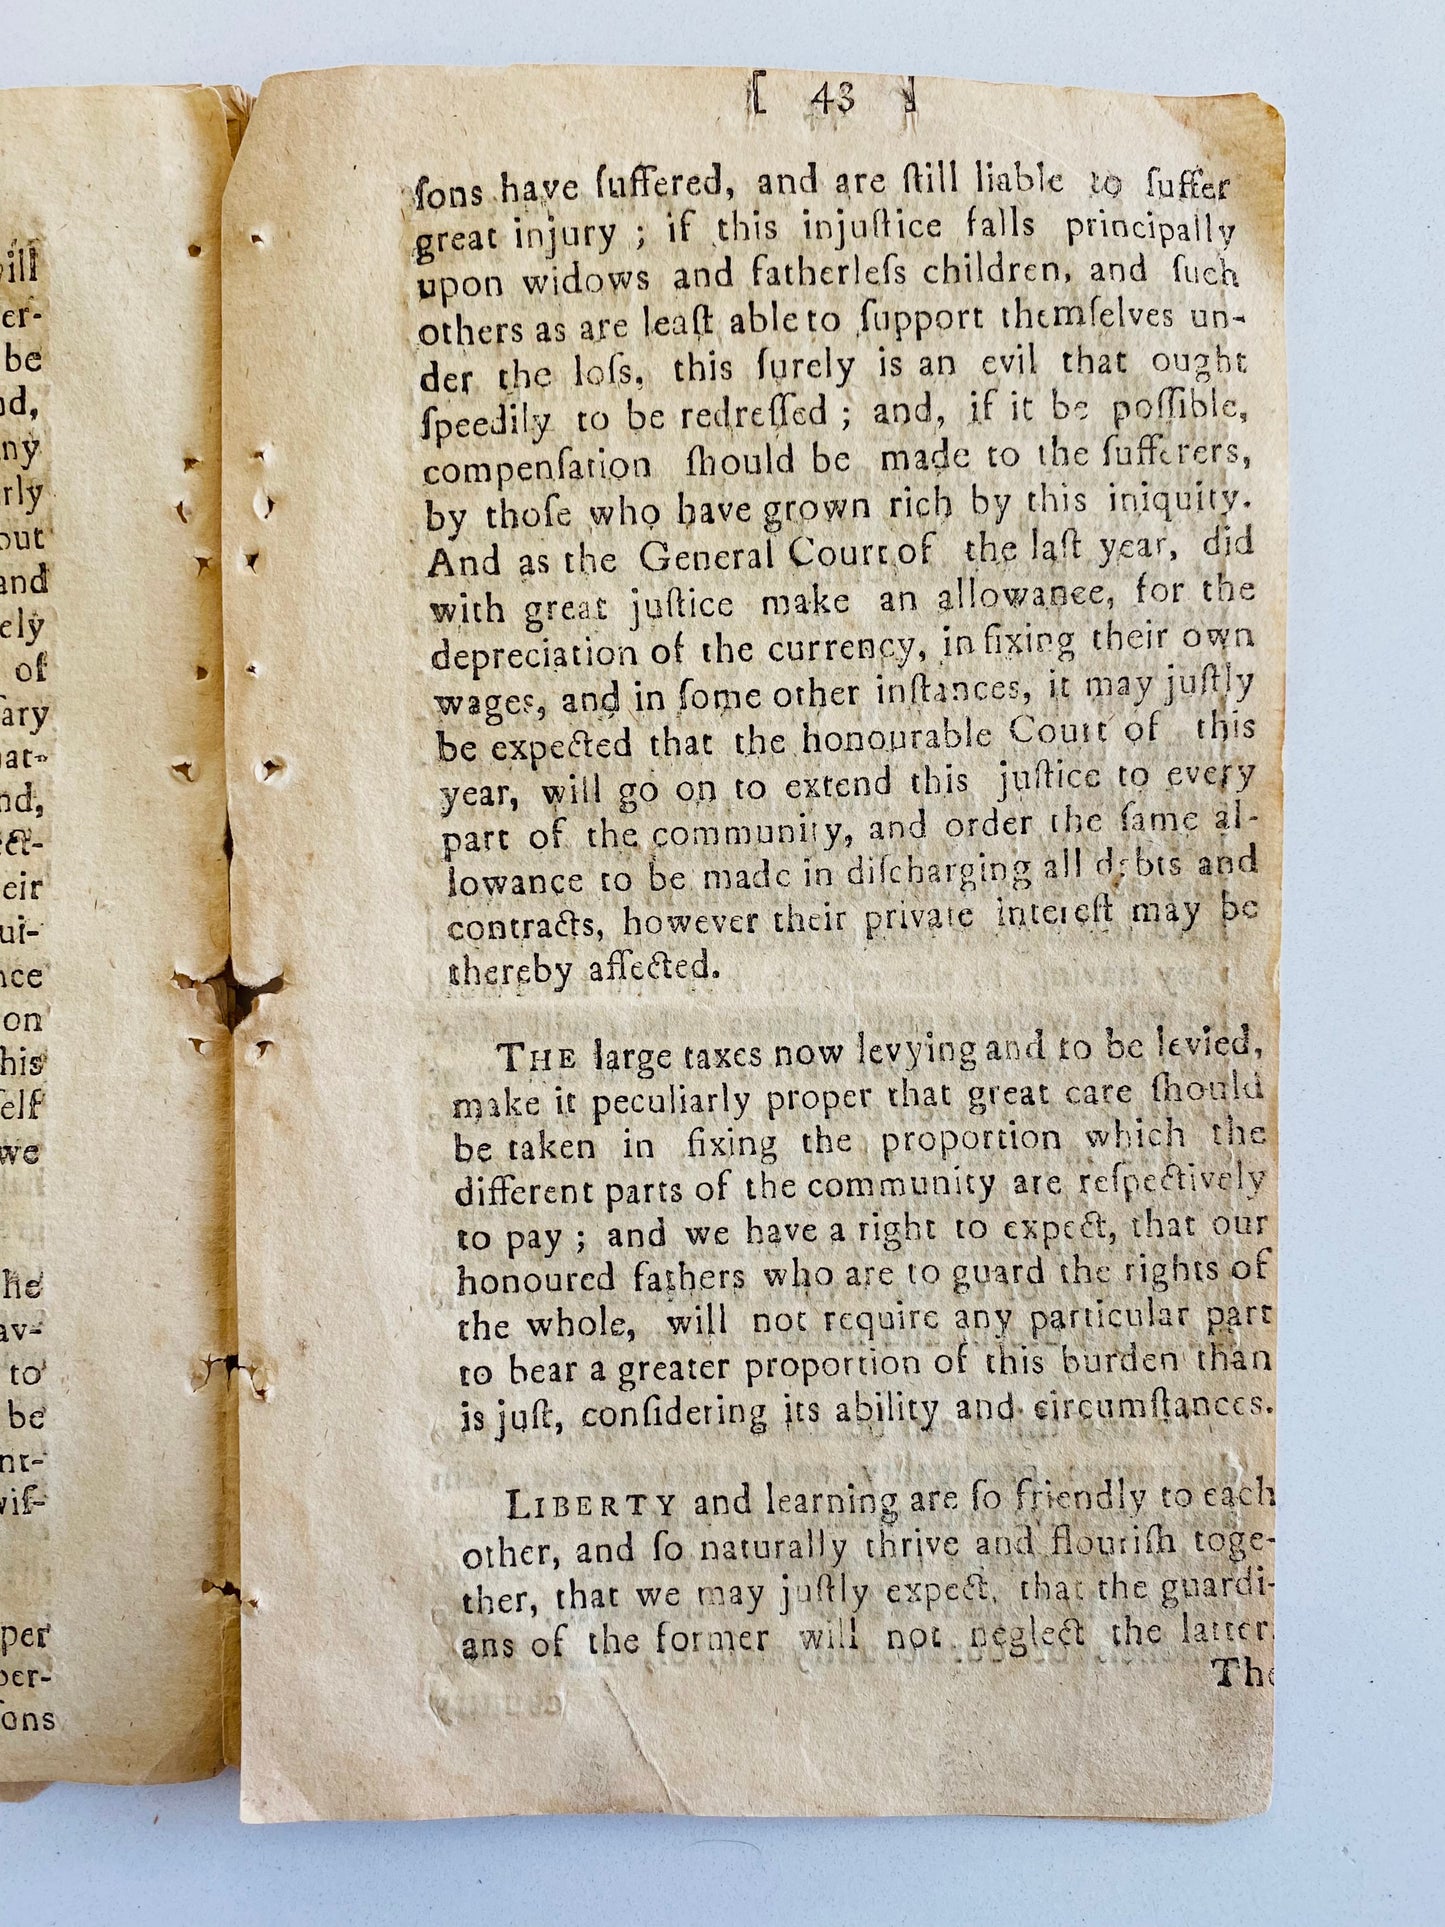 ill
er-
be
nd,
ny
rly
out
and
ely
of
ary
at-
nd,
ect-
eir
ui-
nce
on
his
self
we
he
av-
to
be
nt-
wiſ-
per
per-
ſons
[ 43 ]
ſons have ſuffered, and are ſtill liable to ſuffer
great injury ; if this injuſtice falls principally
upon widows and fatherleſs children, and ſuch
others as are leaſt able to ſupport themſelves un-
der the loſs, this ſurely is an evil that ought
ſpeedily to be redreſſed ; and, if it be poſſible,
compenſation ſhould be made to the ſufferers,
by thoſe who have grown rich by this iniquity.
And as the General Court of the laſt year, did
with great juſtice make an allowance, for the
depreciation of the currency, in fixing their own
wages, and in ſome other inſtances, it may juſtly
be expected that the honourable Court of this
year, will go on to extend this juſtice to every
part of the community, and order the ſame al-
lowance to be made in diſcharging all debts and
contracts, however their private intereſt may be
thereby affected.
THE large taxes now levying and to be levied,
make it peculiarly proper that great care ſhould
be taken in fixing the proportion which the
different parts of the community are reſpectively
to pay ; and we have a right to expect, that our
honoured fathers who are to guard the rights of
the whole, will not require any particular part
to bear a greater proportion of this burden than
is juſt, conſidering its ability and circumſtances.
LIBERTY and learning are ſo friendly to each
other, and ſo naturally thrive and flouriſh toge-
ther, that we may juſtly expect, that the guardi-
ans of the former will not neglect the latter.
The